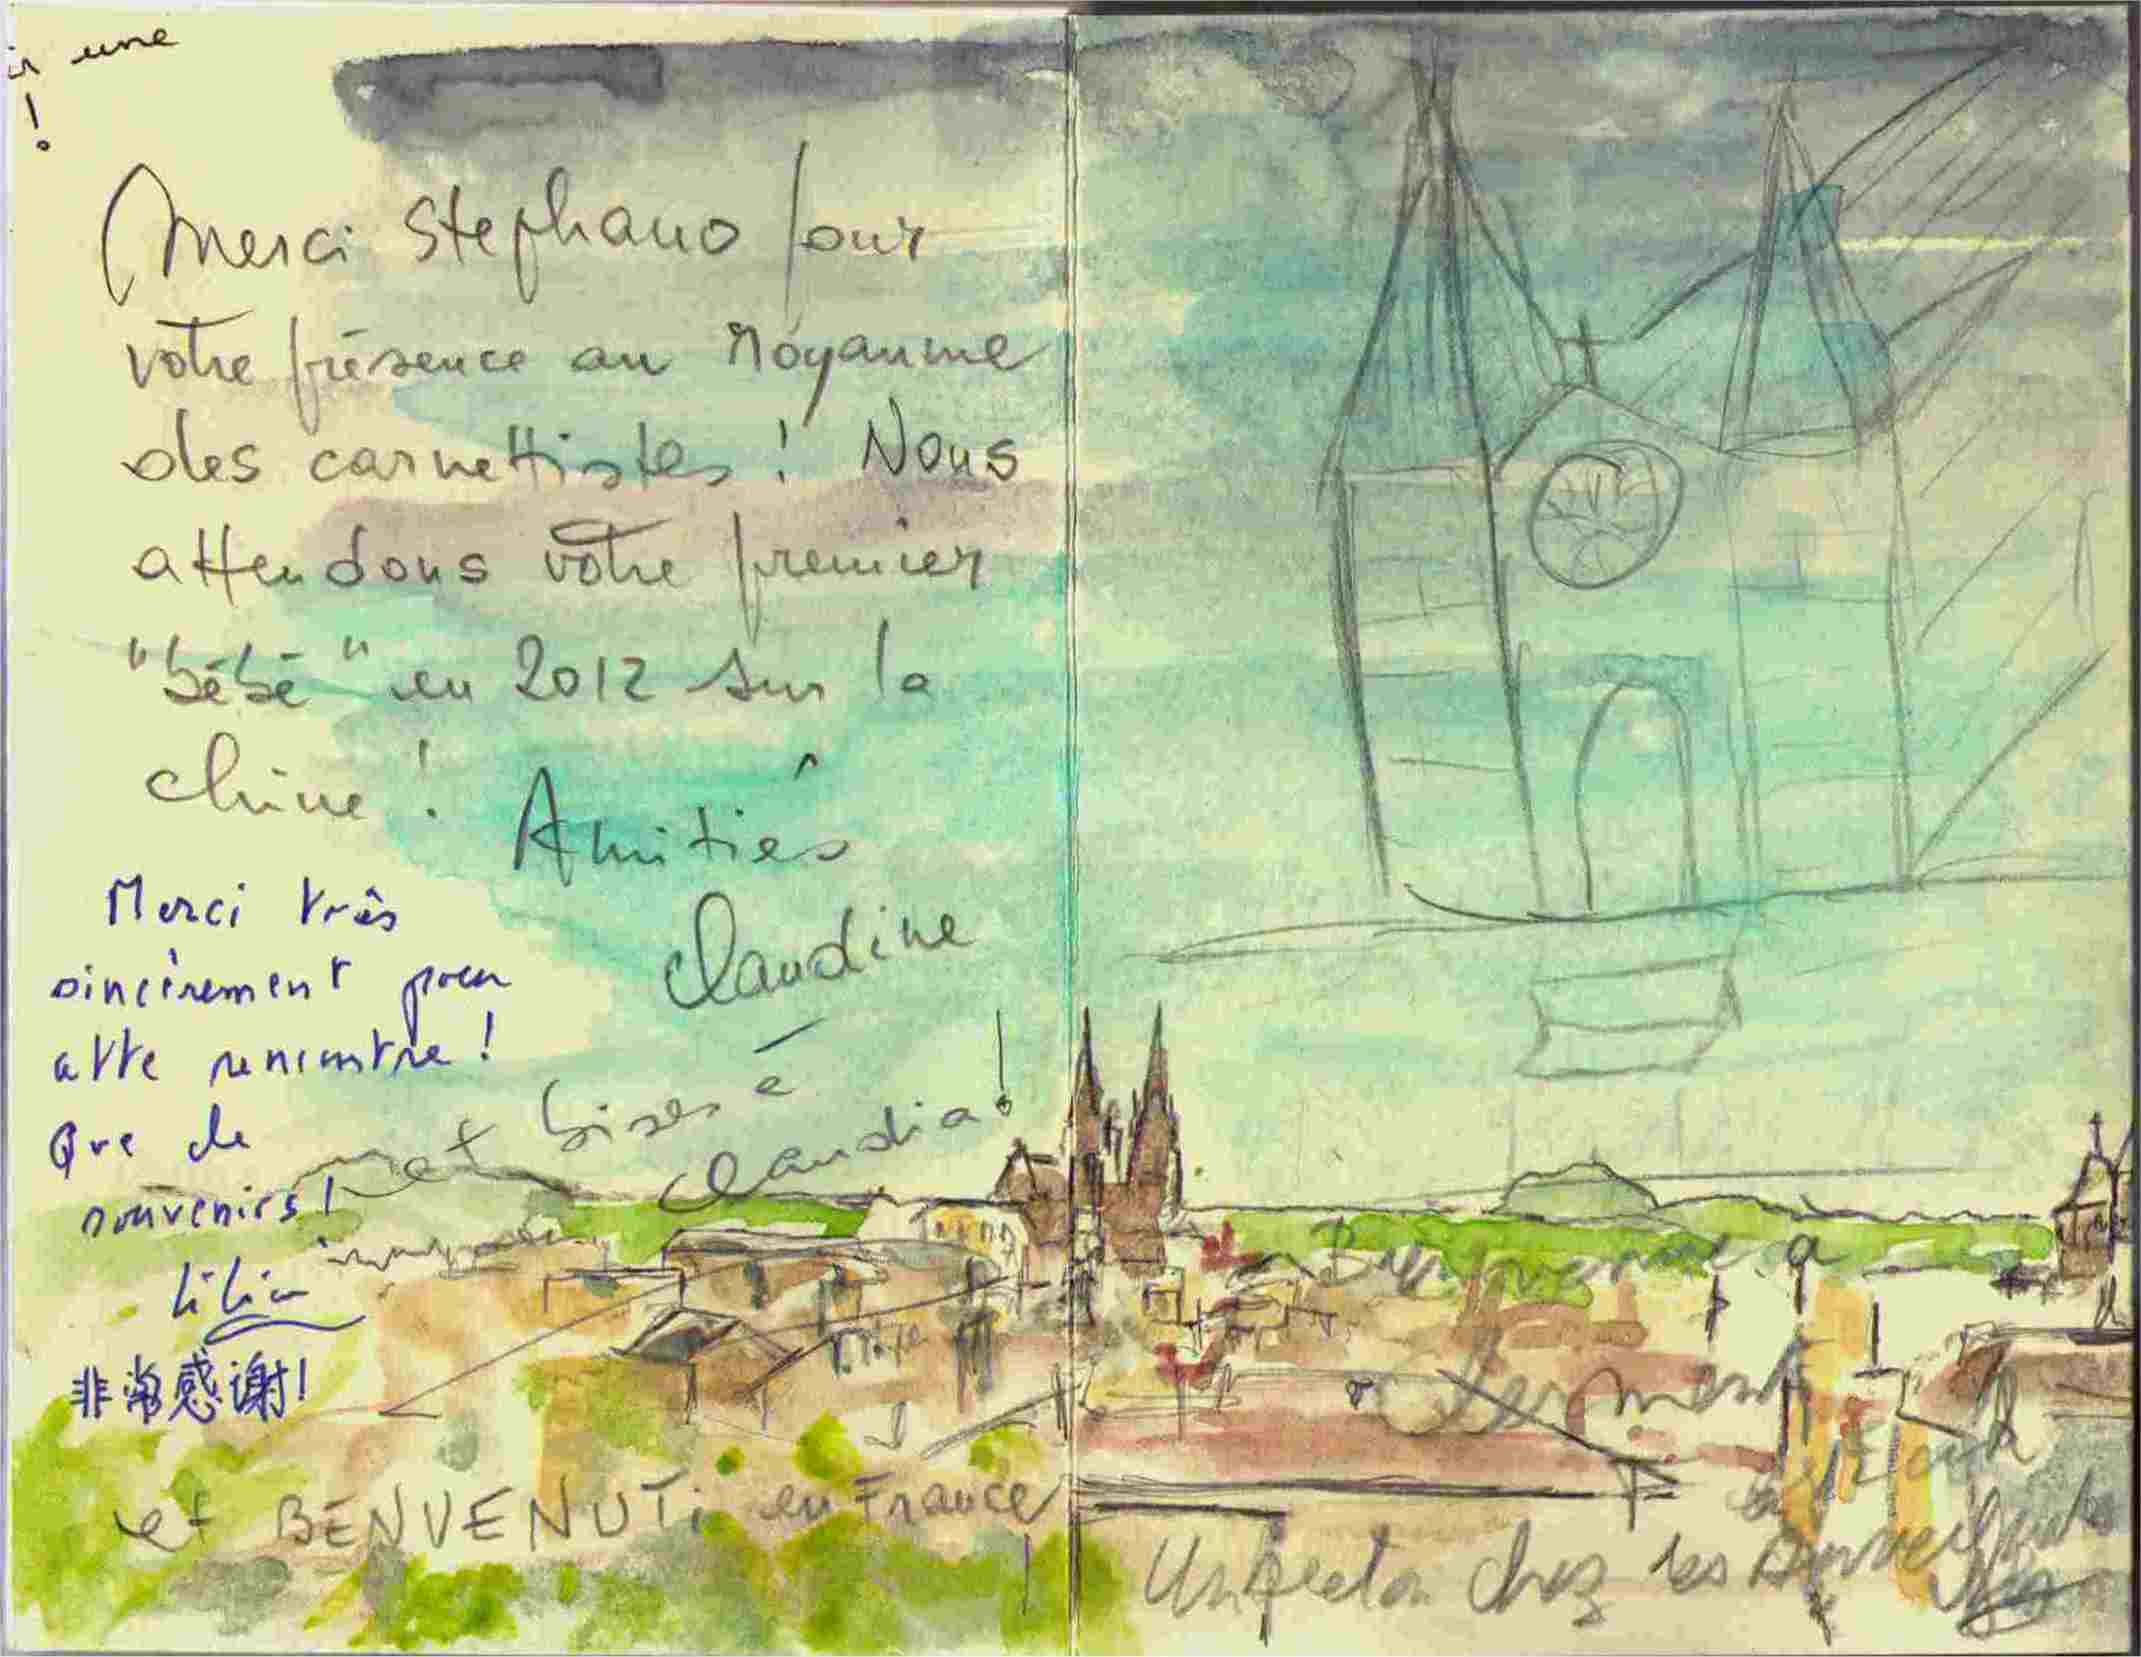 une
!
Merci Stephano pour
votre présence au Royaume
des carnettistes ! Nous
attendons votre premier
"bébé" en 2012 sur la
chine !
Amitiés
Claudine
et bises à
Claudia !
Merci très
sincèrement pour
cette rencontre !
Que de
souvenirs !
Lilia
非常感谢!
et BENVENUTi en France !
Bienvenue à
Clermont
chez les